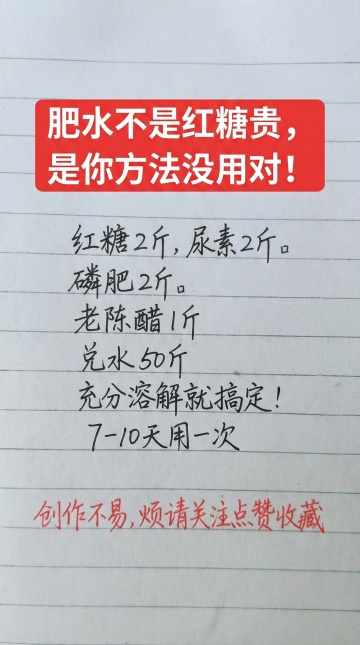 肥水不是红糖贵，
是你方法没用对！
红糖2斤，尿素2斤。
磷肥2斤。
老陈醋1斤
兑水50斤
充分溶解就搞定！
7-10天用一次
创作不易，烦请关注点赞收藏